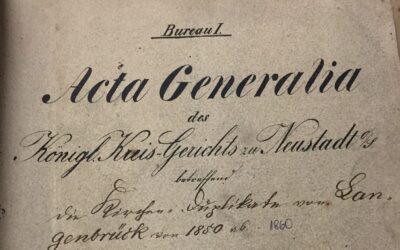 Bureau I.
Acta Generalia
des
Königl. Kreis-Gerichts zu Neustadt O/S
betreffend
die Kirchen-Duplikate von Lan-
genbrück von 1850 ab. 1860